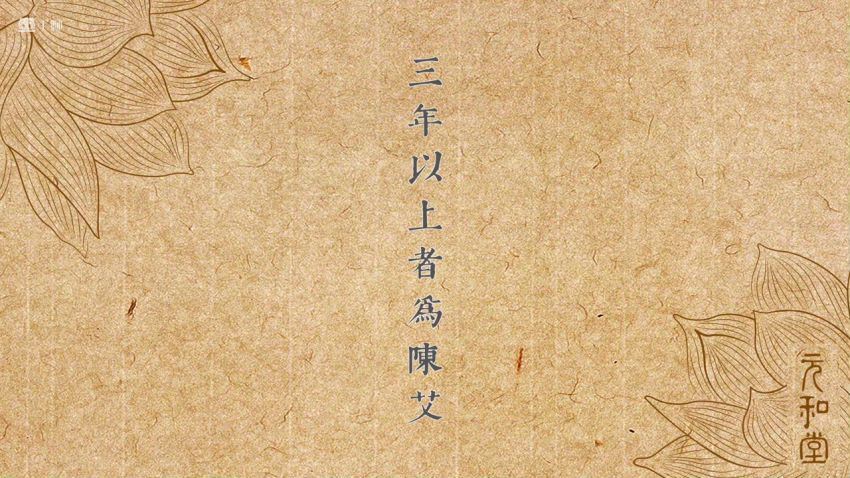 三年以上者為陳艾
元和堂